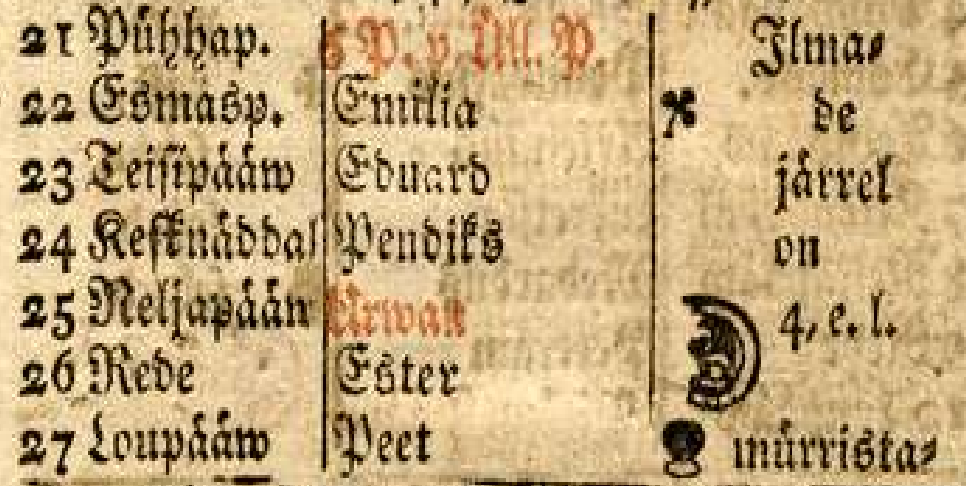 21 Pühhap. 5 P. p. Üll. P. Ilma⸗
22 Esmasp. Emilia de
23 Teisipääw Eduard järrel
24 Kesknäddal Pendiks on
25 Neljapääw Urwan 4, e. l.
26 Rede Ester
27 Loupääw Peet mürrista⸗